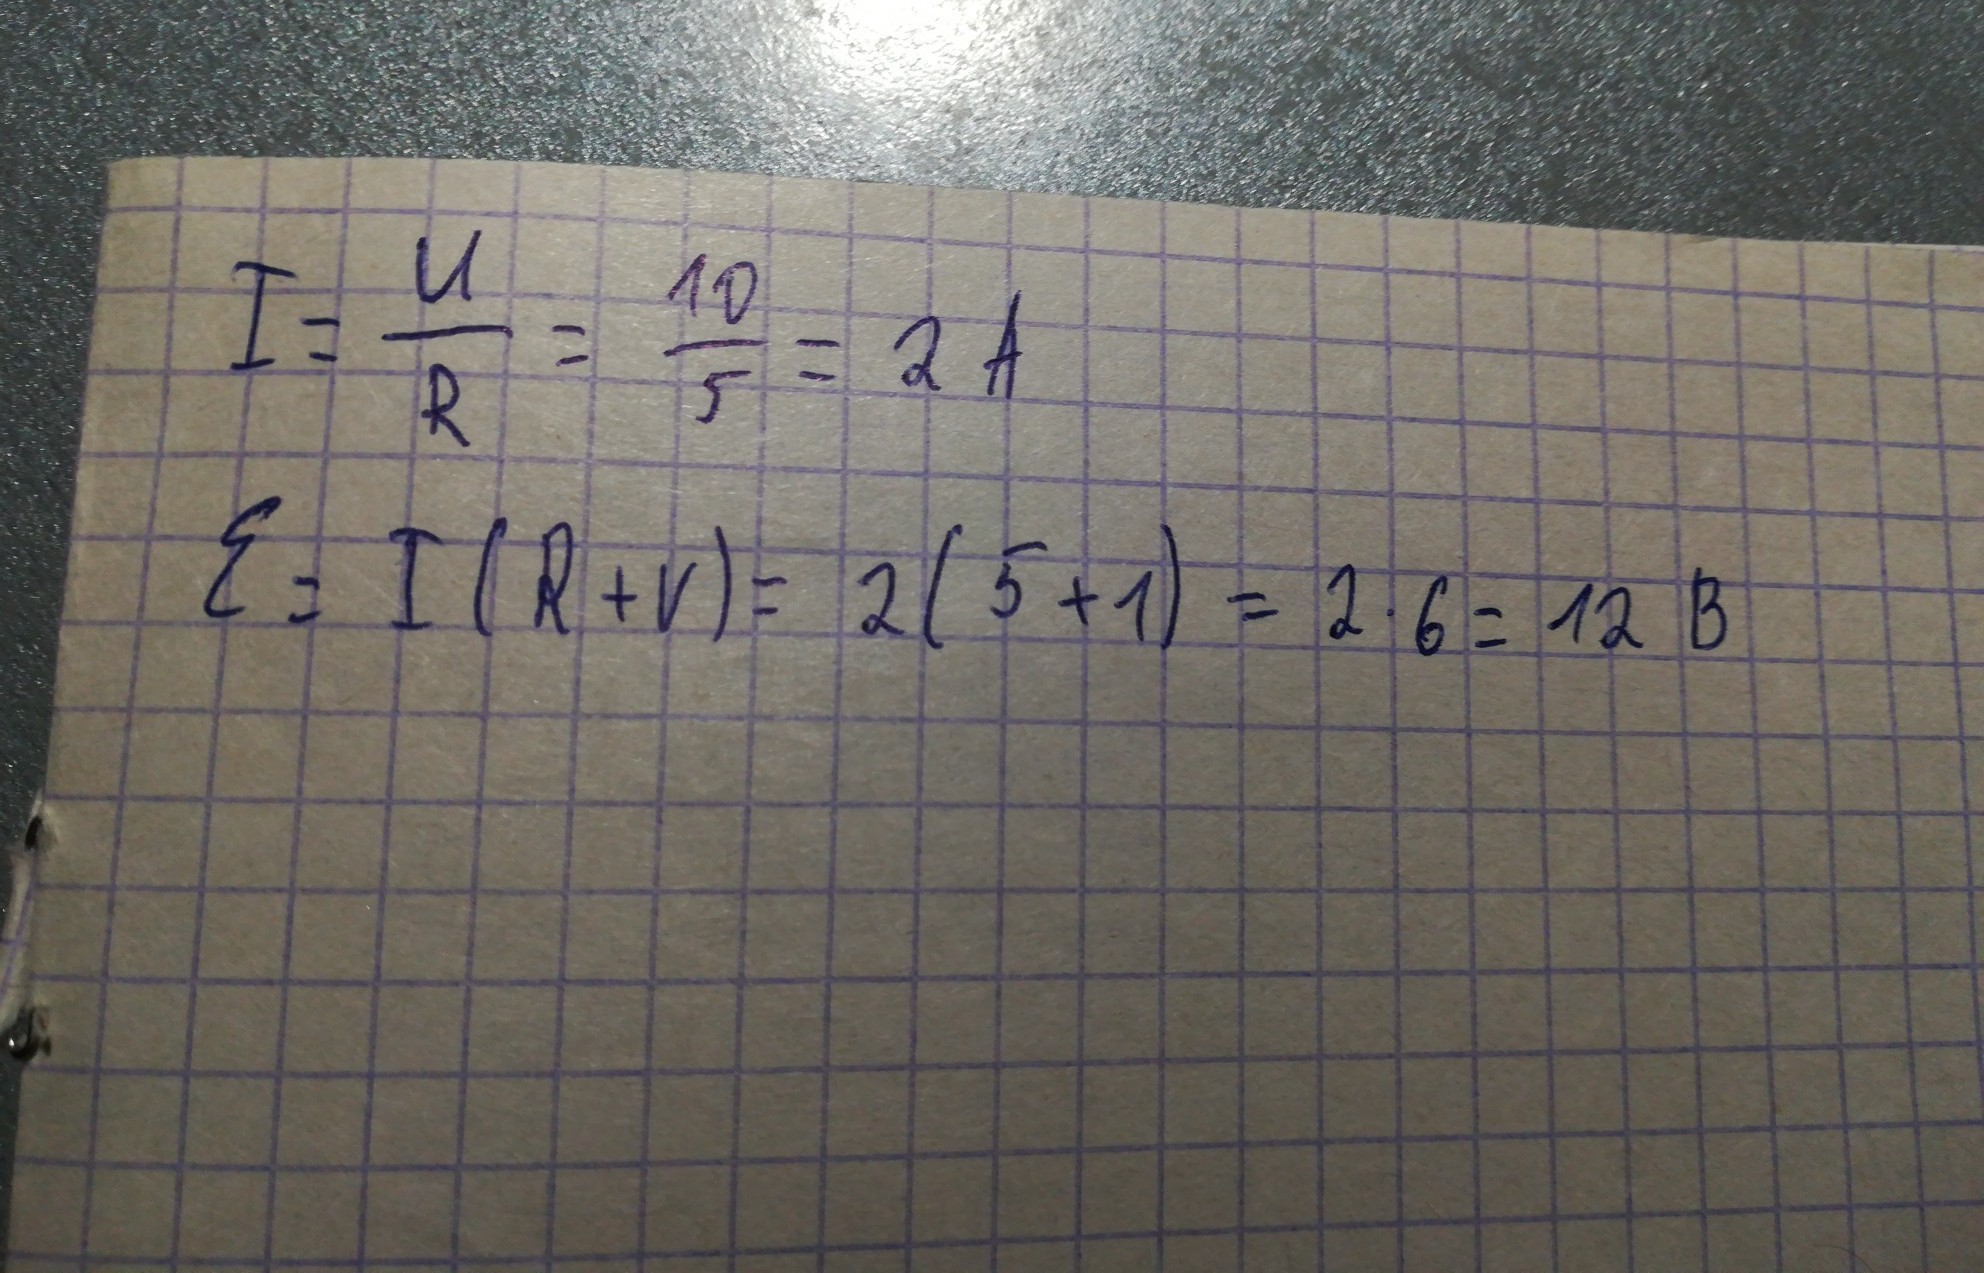 I = U/R = 10/5 = 2 A
Ɛ = I(R+r) = 2(5+1) = 2·6 = 12 В